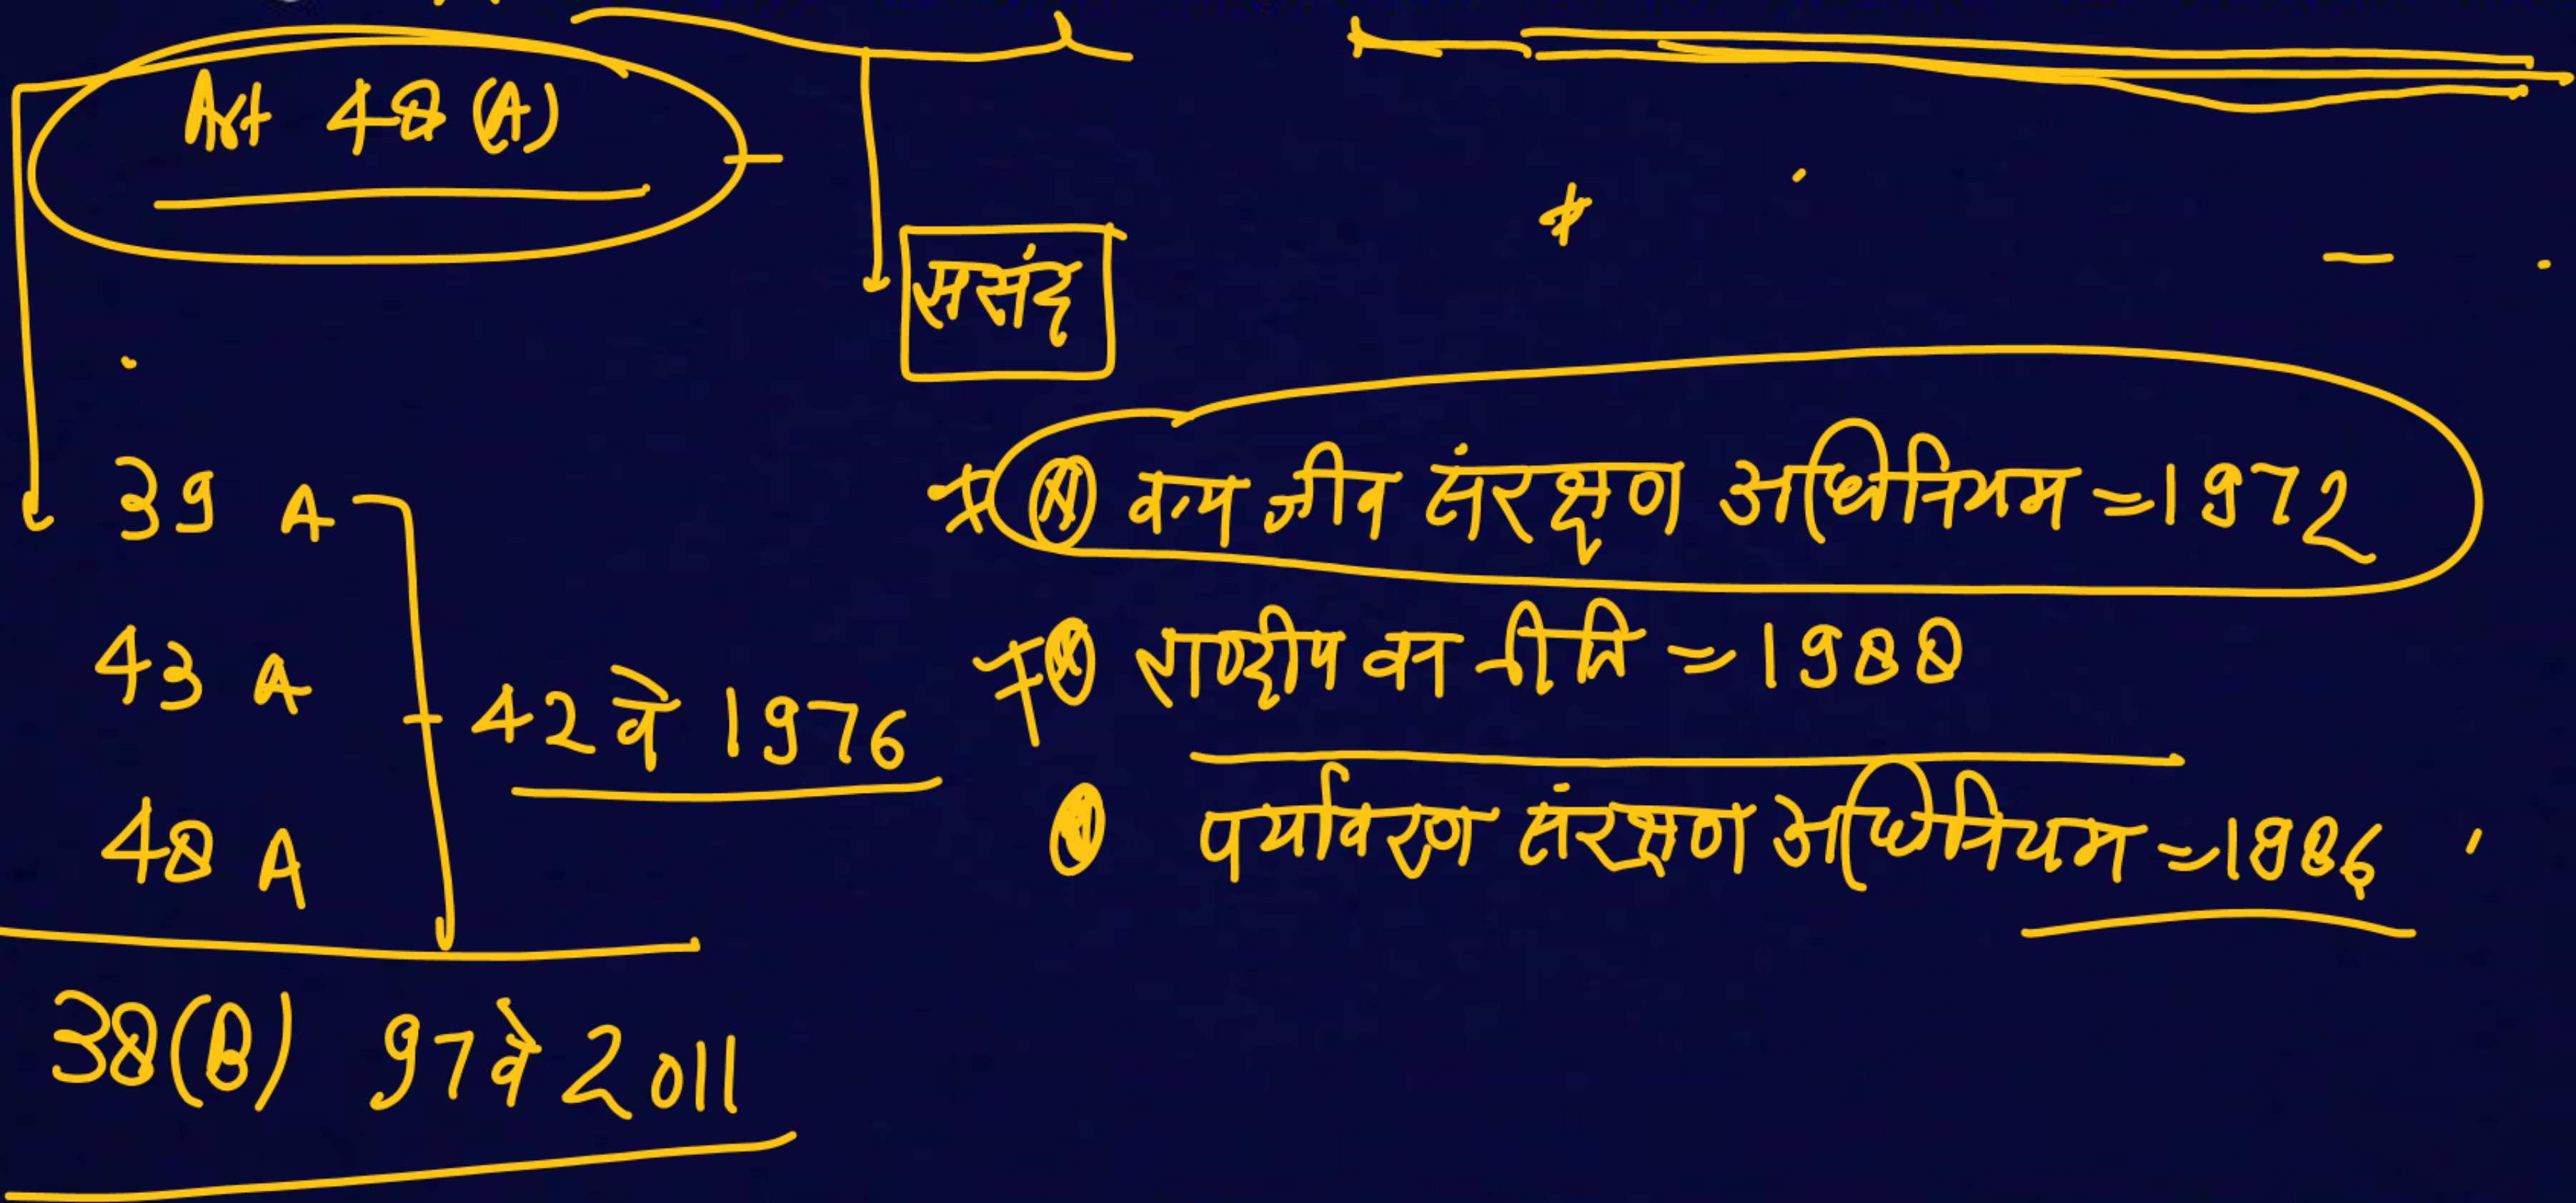 Art 48 (A)
ससंद
39 A
43 A
48 A
42 वे 1976
38(B) 97वे 2011
वन्य जीव संरक्षण अधिनियम = 1972
राष्ट्रीय वन नीति = 1988
पर्यावरण संरक्षण अधिनियम = 1986